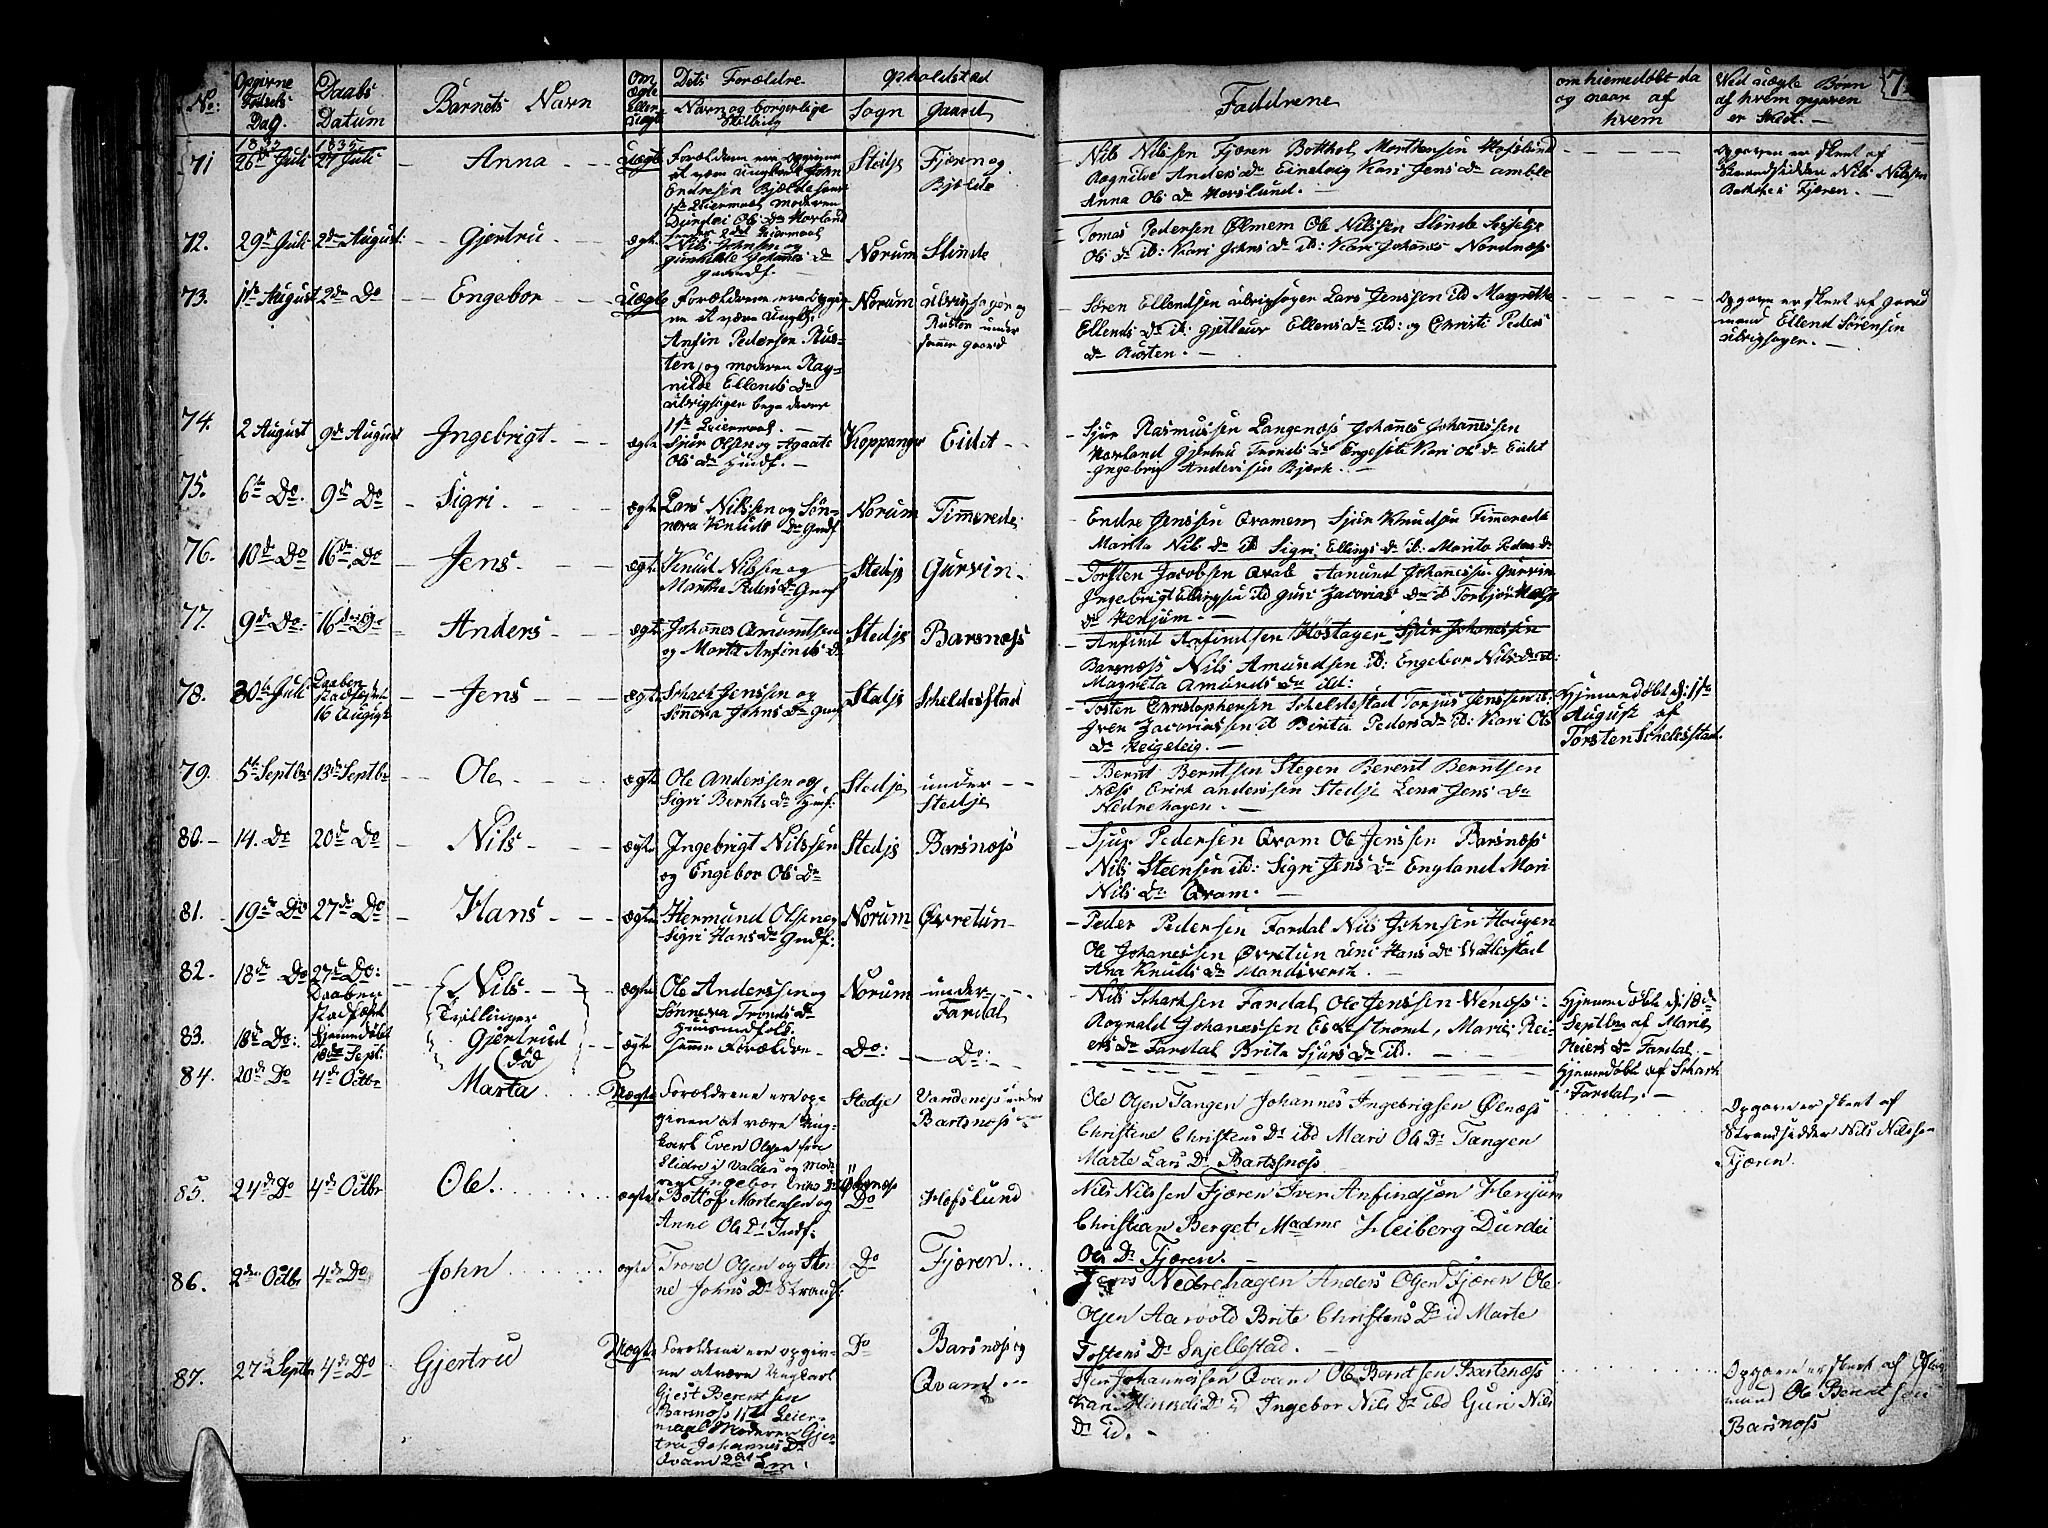 No: Opgivne Fødsels Dag. Daabs Datum Barnets Navn Om ægte Eller Uægte Dets Forældre Navn og borgerlige Stilling Opholdsted Sogn Gaard Faddrene om hiemedøbt da og naar af hvem Ved uægte Børn af hvem opgaven er skeet.
71 1835 26de Juli 1835 27 Juli Anna uægte Forældrene ere opgivne
at være Ungkarl John
Endresen Bjelde
1ste Leiermaal moderen
Durdei Ols Dr
2det Leiermaal
Stedje Fjæren og
Bjelde
Nils Nilssen Fjæren Botthol Morthensen Hofslund
Ragnilde Anders Dr Eindrig Kari Jens Dr amble
Anna Ols Dr Hovslund.
Opgaven er skeet af
Strandsidder Nils Nilssen
Fjæren.
72. 29de Juli 2den August Gjertru ægte Nils Johnsen og
Johannes Dr
Norum Slinde
Tomas Pedersen Ølmem Ole Nilssen Slinde
Ols Dr ib: Kari Johns Dr ib: Kari Johanes Nordnæss
73. 1ste August 2den Do Engebor uægte Forældrene ere opgiv
ne at være Ungk:
Anfin Pedersen Rus-
ten, og moderen Rag-
nilde Ellends Dr
Ulvigsager begge deres
1ste Leiermaal.
Norum Ulvigsager og
Rusten under
samme gaard
Søren Ellendsen Ulvigsager Lars Jenssen ib Magrethe
Ellends Dr ib: Ellens Dr ib: og Christi Peders
Dr Rusten.
Opgaven er skeet af gaard
mand Ellend Sørensen
Ulvigsager.
74. 2 August 9de August Ingebrigt ægte Sjur Olsen og Agaate
Ols Dr Huusf.
Koppanger Eidet
Sjur Rasmussen Langenæss Johanes Johanessen
Hovland Gjertru Tronds Dr Engesete Kari Ols Dr Eidet
Ingebrig Anderssen Bjørk.
75. 6te Do. 9de Do Sigri ægte Lars Nilssen og Søn-
neva Knuds Dr Gmdf
Norum Timrede
Endre Jenssen Qvamem Sjur Knudsen Timerede
Marita Nils Dr ib Sigri Ellings Dr ib: Marita Peders Dr
76. 10de Do 16de Do Jens ægte Knud Nilssen og
Martha Peders Dr Gmdf
Stedje Gurvin
Torsten Jacobsen Qvale Amund Johanessen Gurvin
Ingebrigt Ellingsen ib Guri Zacarias Dr ib Torbjør
Dr Henjum.
77. 9de Do: 16de Do Anders ægte Johanes Amundsen
og Marta Anfinds Dr
Stedje Barsnæss
Anfind Anfindsen Høstager Sjur Johanessen
Barsnæss Nils Amundsen ib: Engebor Nils Dr ib:
Magreta Amunds Dr ib:
78. 30te Juli Daaben
stadfæstet
16 August Jens ægte Schack Jenssen og
Sønneva Johns Dr Gmf
Stedje Scheldestad
Tosten Christophersen Scheldestad Torjus Jenssen ib:
Iver Zacariassen ib Birita Peders Dr ib: Kari Ols
Dr Heigeleig.
Hjemmedøbt d: 1ste
August af
Torsten Scheldestad.
79. 5te Septbr 13de Septbr Ole ægte Ole Anderssen og
Sigri Bernts Dr Husf:
Stedje under
Stedje
Bernt Berntsen Stegen Berent Berntsen
Næss Erick anderssen Stedje Lena Jens Dr
Nedrehagen.
80. 14. Do 20de Do Nils ægte Ingebrigt Nilssen
og Engebor Ols Dr
Stedje Barsnæss
Sjur Pedersen Qvam Ole Jenssen Barsnæss
Nils Steensen ib: Sigri Jens Dr England Mari
Nils Dr Qvam.
81. 19de Do 27de Do Hans ægte Hermund Olsen og
Sigri Hans Dr Gmdf:
Norum Øvretun
Peder Pedersen Fardal Nils Johnsen Haugen
Ole Johanessen Øvretun Hans Dr Wallestad
Ana Knuds Dr Mandsverk.
82. 18de Do 27de Do:
Daaben
stadfæstet Nils ægte Ole Anderssen og
Sønneva Tronds Dr
Huusmdfolk
Norum under
Fardal
Tvillinger
Nils Schacksen Fardal, Ole Jenssen Wenæss
Ragnald Johanessen Eskestrand, Marie Rei-
ers Dr Fardal Brita Sjurs Dr ib.
Hjemmedøbt d: 18de
Septbr af Marie
Reiers Dr Fardal.
83. 18de Do: hjemmedøbt
18de Sept: Gjertrud
(død) ægte samme Forældre Do: Do:
Hjemmedøbt af Schack
Fardal.
84. 20de Do 4de Octbr Marta Uægte Forældrene ere op-
given at være Ung-
karl Even Olsen fra
Slidre i Valders og Mod-
eren Ingebor
Stedje under
Bartsnæss
Ole Olsen Tangen Johannes Ingebrigsen Ølnæss
Christene Christens Dr ibd Mari Ols Dr Tangen
Marte Lars Dr Bartsnæss
Opgaven er skeet af
Strandsidder Nils Nilssen
Fjæren.
85. 24de Do 4de Octbr Ole ægte Bottolf Mortensen og
Anne Ols Dr Indf.
Do Hofslund
Nils Nilssen Fjæren Iver Anfindsøn Henjum
Christian Berget Madme Heiberg Durdei
Ols Dr Fjæren.
86. 2den Octbr 4de Do John ægte Trond Olsen og
Johns Dr Strands.
Do Fjæren
Jens Nedrehagen Anders Olsen Fjæren Ole
Olsen Aarvold Brite Christens Dr id Marte
Tostens Dr Skjellestad.
87. 27de Septbr 4de Do Gjertru Uægte Forældrene ere opgiv-
ne at være Ungkarl
Gjest Berentsen
Barsnæss 1ste Leier-
maal Moderen Gjer-
tru Johannes Dr
Qvam 2det Lm.
Do Barsnæs og
Qvam
Johannessen Qvam Ole Berntsen Bartsnæss
Kari Dr id Ingebor Nils Dr ibd Guri Nils
Dr id.
Opgaven er skeet af
mand Ole Berntsen
Barsnæss